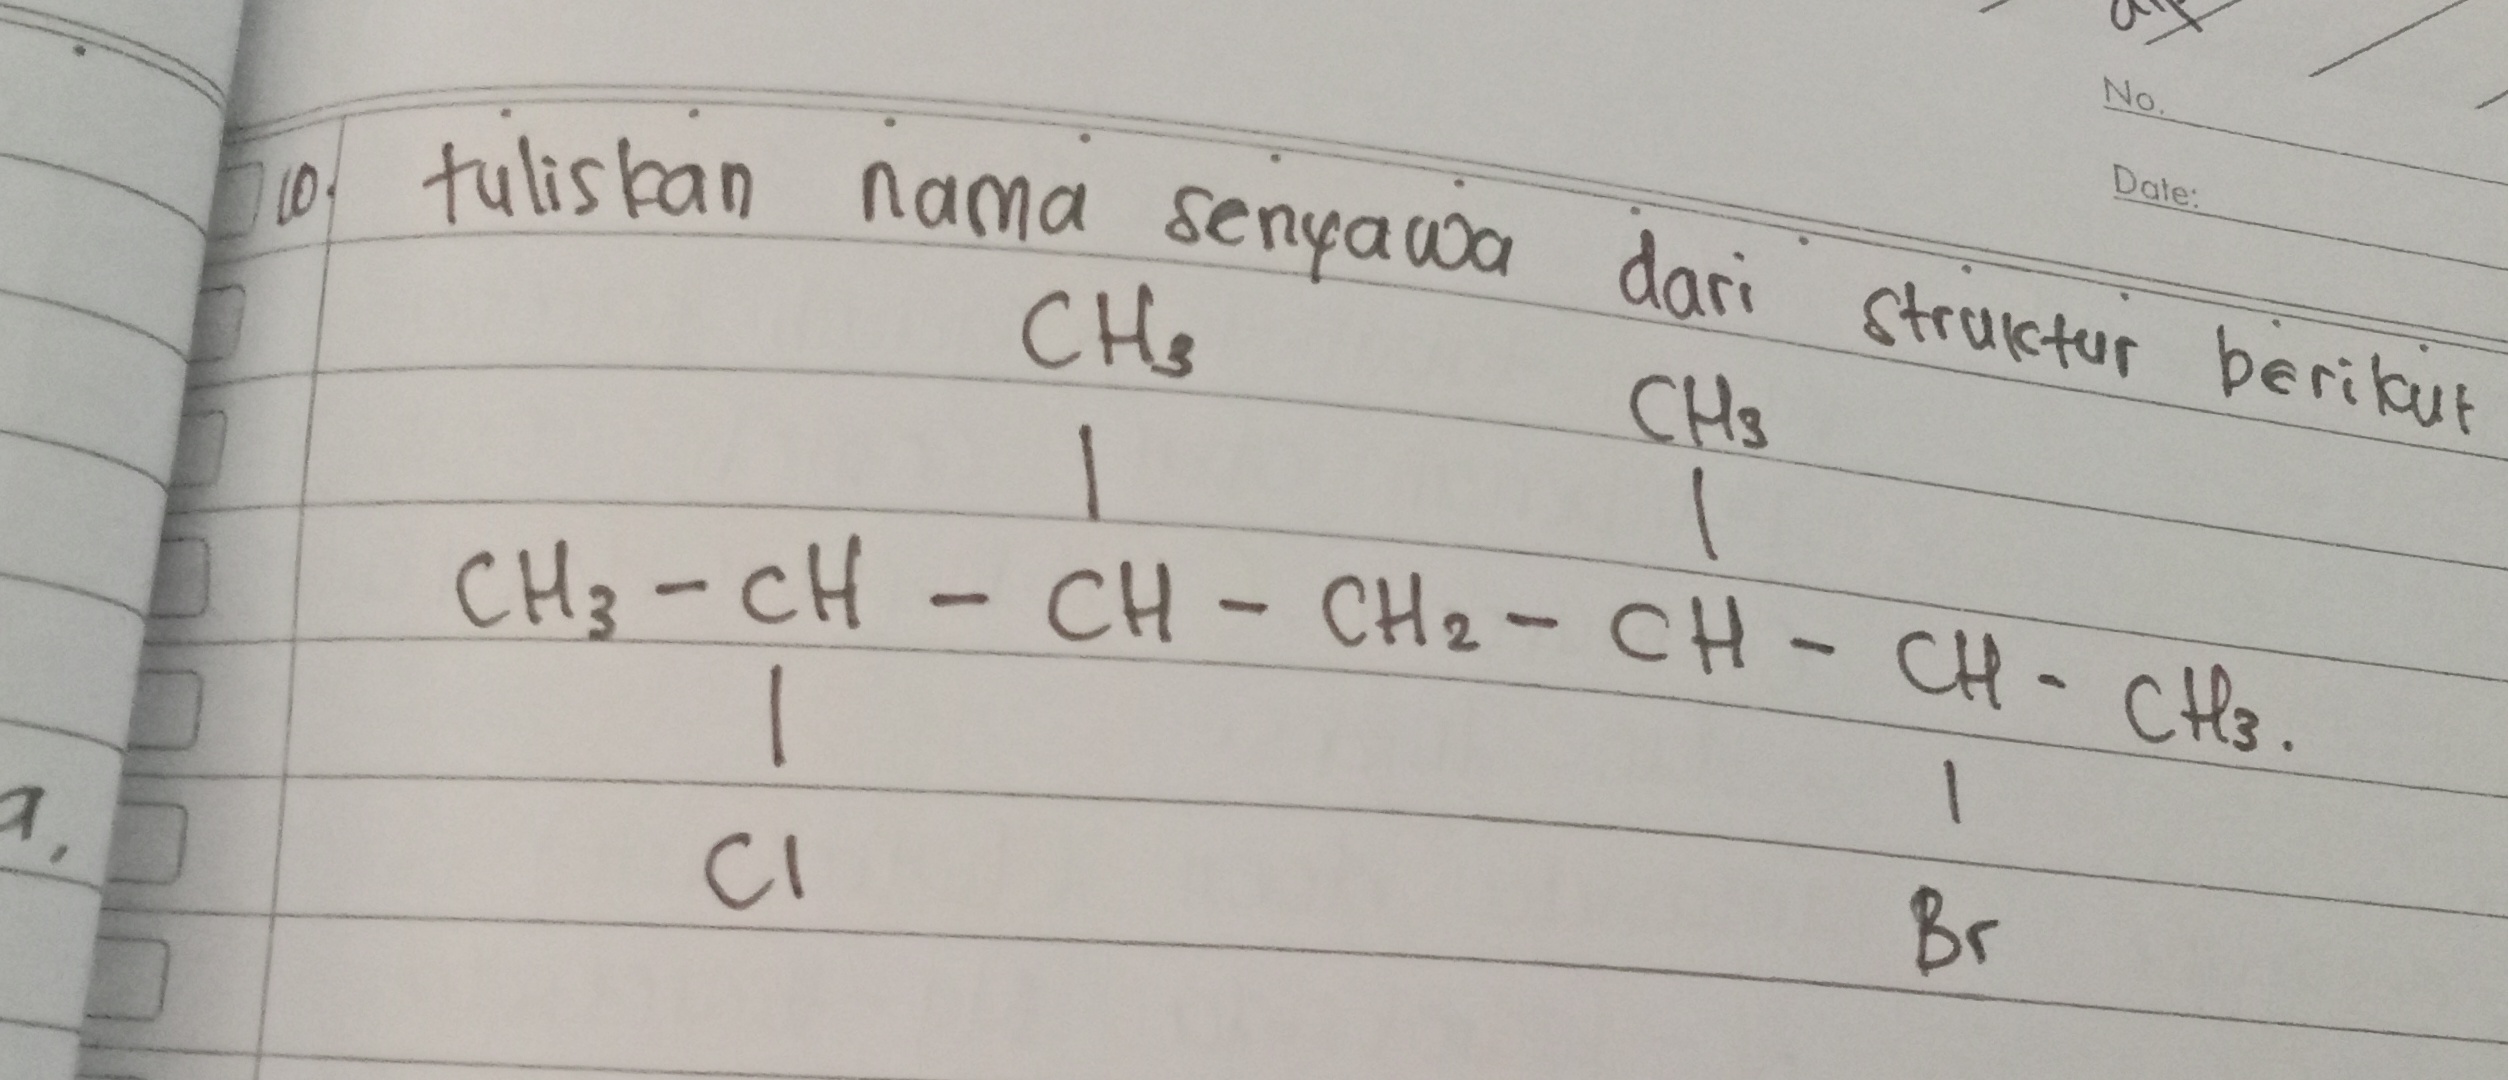 No.
Date:
10. tuliskan nama senyawa dari struktur berikut
CH₃ CH₃
| |
CH₃ - CH - CH - CH₂ - CH - CH - CH₃.
| |
Cl Br
a.